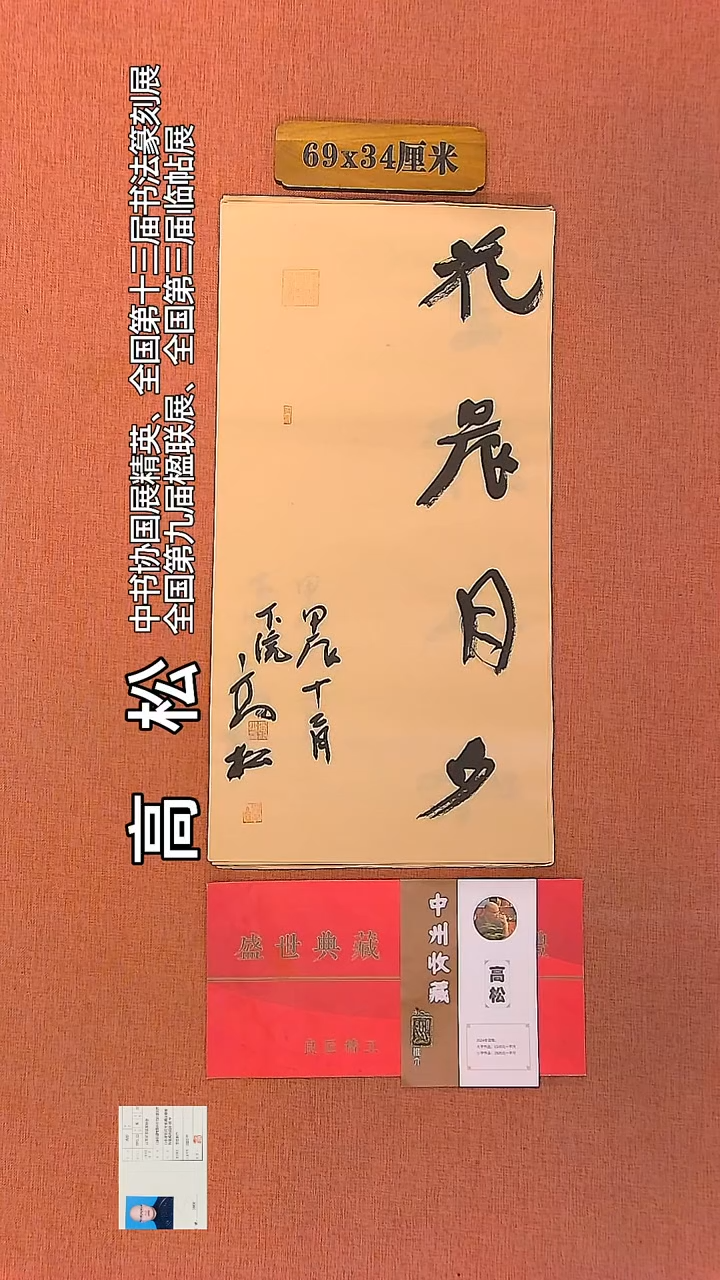 69x34厘米
中书协国展精英、全国第十三届书法篆刻展
全国第九届楹联展、全国第三届临帖展
高 松
花晨月夕
甲辰十二月
下浣
高松
盛世典藏
中州收藏
高松